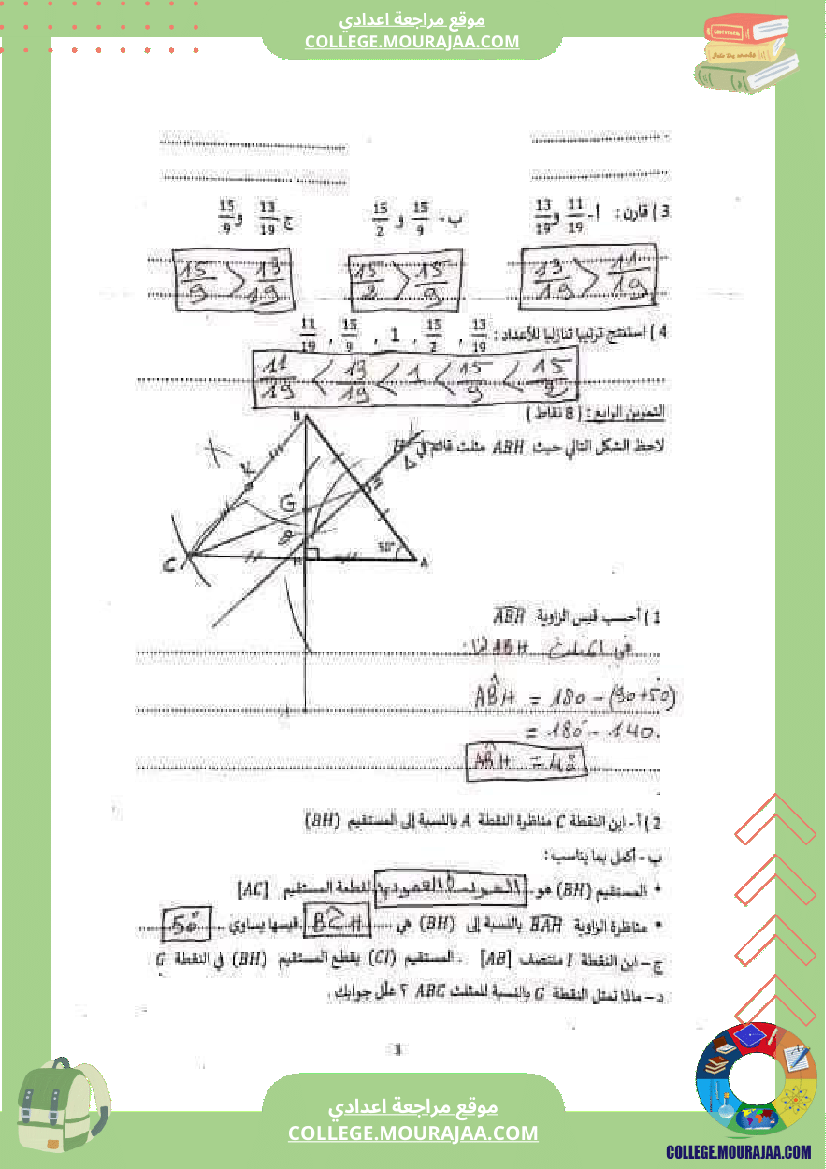 موقع مراجعة اعدادي
COLLEGE.MOURAJAA.COM
3 ) قارن : أ- 11/19 و 13/19 ب- 15/9 و 15/2 ج 13/19 و 15/9
13/19 > 11/19
15/2 > 15/9
15/9 > 13/19
4 ) استنتج ترتيبا تنازليا للأعداد : 13/19 , 15/2 , 1 , 15/9 , 11/19
11/19 < 13/19 < 1 < 15/9 < 15/2
التمرين الرابع : ( 8 نقاط )
لاحظ الشكل التالي حيث ABH مثلث قائم في
B
K
G
C
H
50°
A
Δ
1 ) أحسب قيس الزاوية ABH
في المثلث ABH لنا:
ABH = 180 - (90+50)
= 180 - 140.
ABH = 40
2 ) أ- ابن النقطة C مناظرة النقطة A بالنسبة إلى المستقيم (BH)
ب- أكمل بما يناسب :
* المستقيم (BH) هو الموسط العمودي لقطعة المستقيم [AC]
* مناظرة الزاوية BAH بالنسبة إلى (BH) هي BCH قيسها يساوي 50°
ج – ابن النقطة I منتصف [AB] . المستقيم (CI) يقطع المستقيم (BH) في النقطة G
د – ماذا تمثل النقطة G بالنسبة للمثلث ABC ؟ علّل جوابك .
موقع مراجعة اعدادي
COLLEGE.MOURAJAA.COM
COLLEGE.MOURAJAA.COM